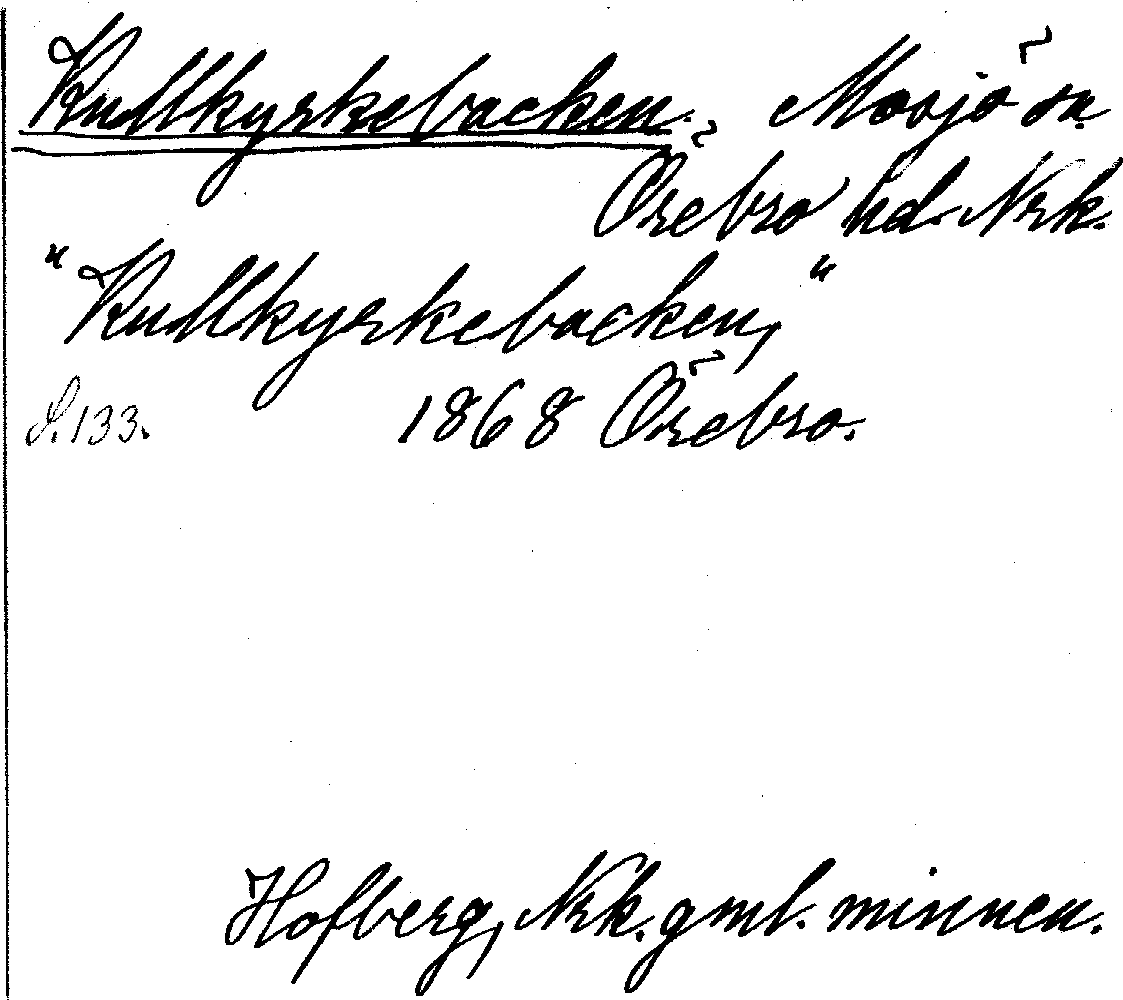 Kullkyrkebacken. Mosjö sn.
Örebro hd. Nrk.
"Kullkyrkebacken,"
S. 133. 1868 Örebro.
Hofberg, Nrk. gml. minnen.